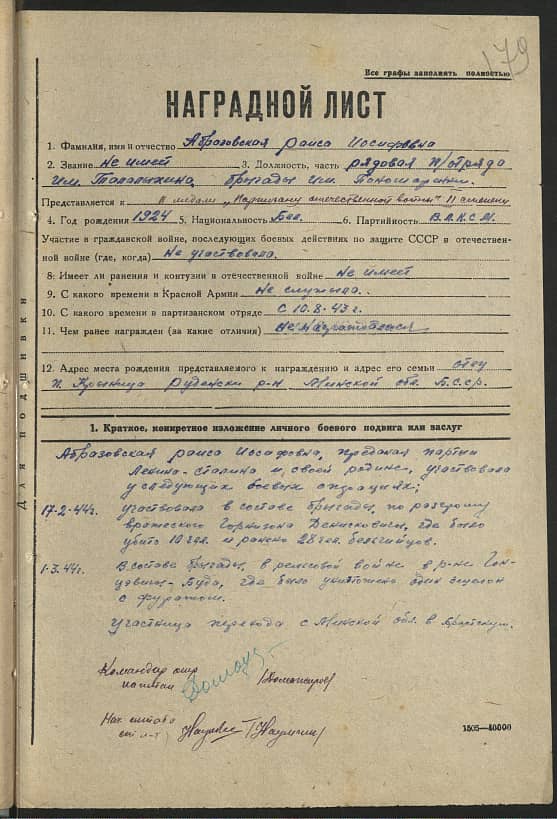 179
Все графы заполнять полностью
НАГРАДНОЙ ЛИСТ
1. Фамилия, имя и отчество Абразовская раиса Иосифовна
2. Звание не имеет 3. Должность, часть рядовая п/отряда
им. Талалыхина, бригады им. Пономаренко.
Представляется к медали „Партизану отечественной войны" II степени
4. Год рождения 1924 5. Национальность Бел. 6. Партийность В.Л.К.С.М.
Участие в гражданской войне, последующих боевых действиях по защите СССР и отечествен-
ной войне (где, когда) Не участвовала.
8. Имеет ли ранения и контузии в отечественной войне не имеет
9. С какого времени в Красной Армии не служила.
10. С какого времени в партизанском отряде с 10.8-43 г.
11. Чем ранее награжден (за какие отличия)
12. Адрес места рождения представляемого к награждению и адрес его семьи отец
Крыница Руденски р-н Минской обл. Б.С.С.р.
1. Краткое, конкретное изложение личного боевого подвига или заслуг
Абразовская раиса Иосифовна, преданая партии
Ленина-Сталина и своей родине, участвовала
у следующих боевых операциях;
17-2-44г. участвовала в составе бригады, по разгрому
вражеского гарнизона Денисковичи, где было
убито 10 чел. и ранено 28 чел. бельгийцов.
1-3.44г. В составе бригады, в рельсовой войне в р-не Ган-
цевичи-Буда, где было уничтожено один эшелон
с фуражом.
Участница перехода с Минской обл. в Брестскую.
Командир отр
капитан
Нач штаба
ст л-т /Наумчик/
1505—50000
ДЛЯ ПОДШИВКИ